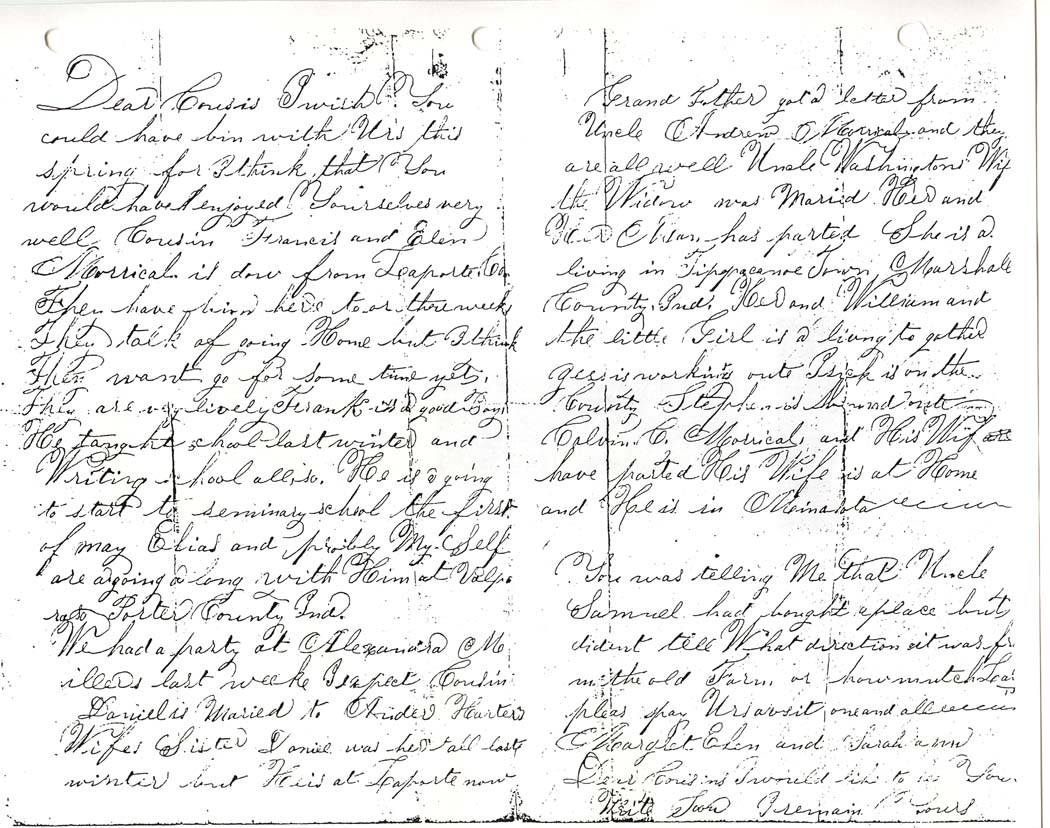 Dear Cousis I wish You
could have bin with Urs this
spring for I think that You
would have enjoyed Yourselves very
well Cousin Francis and Elen
Morrical is dow from Laporte Co
They have bind here to or three week
They talk of going Home but I think
They want go for some time yet.
They are very lively Frank is a good Boy
He taught school last winter and
Writing school allso. He is a going
to start to seminary school the first
of may Elias and probly My Self
are agoing a long with Him at Valpa
raso Porter County Ind.
We had a party at Alexandra M
illers last weeke I expect Cousin
Daniel is Maried to Ander Harters
Wifes Sister Daniel was here all last
winter but He is at Laporte now
Grand Father got a letter from
Uncle Andrew Morrical and they
are all well Uncle Washingtons Wif
the Widow was Maried Her and
Her Man has parted She is a
living in Tippacanoe Town Marshall
County, Ind. Her and William and
the little Girl is a living to gether
is working oute is on the
County Stephen is out
Calvin C. Morrical and His Wife
have parted His Wife is at Home
and He is in Minasota
You was telling Me that Uncle
Samuel had bought a place but
dident tell What direction it was fr
m the old Farm or how mutch
pleas pay Urs a visit one and all
Margret Elen and Sarah ann
Dear Cousins I would like to see You
Write Soon I remain Yours